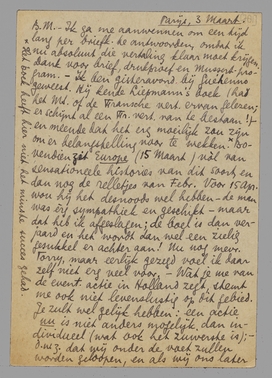 Parijs, 3 Maart.
B.M. – Ik ga me aanwennen om een tijd
lang per brief k. te antwoorden, omdat ik
nu absoluut die vertaling klaar moet krijgen.
Dank voor brief, drukproef en Mussert-pro-
gram. – Ik ben gisteravond bij Guéhenno
geweest. Hij kende Liepmann's boek (had
het Ms. of de Fransche vert. ervan gelezen;
er schijnt al een Fr. vert. van te bestaan!)
en meende dat het erg moeilijk zou zijn
om er belangstelling voor te wekken. Bo-
vendien zit Europe (15 Maart) vol van
sensationeele histories van dit soort, en
dan nog de relletjes van Febr. Voor 15 Apr.
wou hij het desnoods wel hebben – de man
was erg sympathiek en geschikt – maar
dat heb ik afgeslagen; de boel is dan ver-
jaard en het wordt dan wel een zielig
geval er achter aan! Nu nog mevr.
Torry, maar eerlijk gezegd voel ik daar
zelf niet erg veel voor. – Wat je me van
de event. actie in Holland zegt, stemt
me ook niet levenslustig op dit gebied.
Je zult wel gelijk hebben: een actie
nu is niet anders mogelijk, dan in-
dividueel (wat ook het zuiverste is); –
d.w.z. dat wij onder de voet zullen
worden geloopen, en als wij ons later
* Het boek heeft hier niet het minste succes gehad.